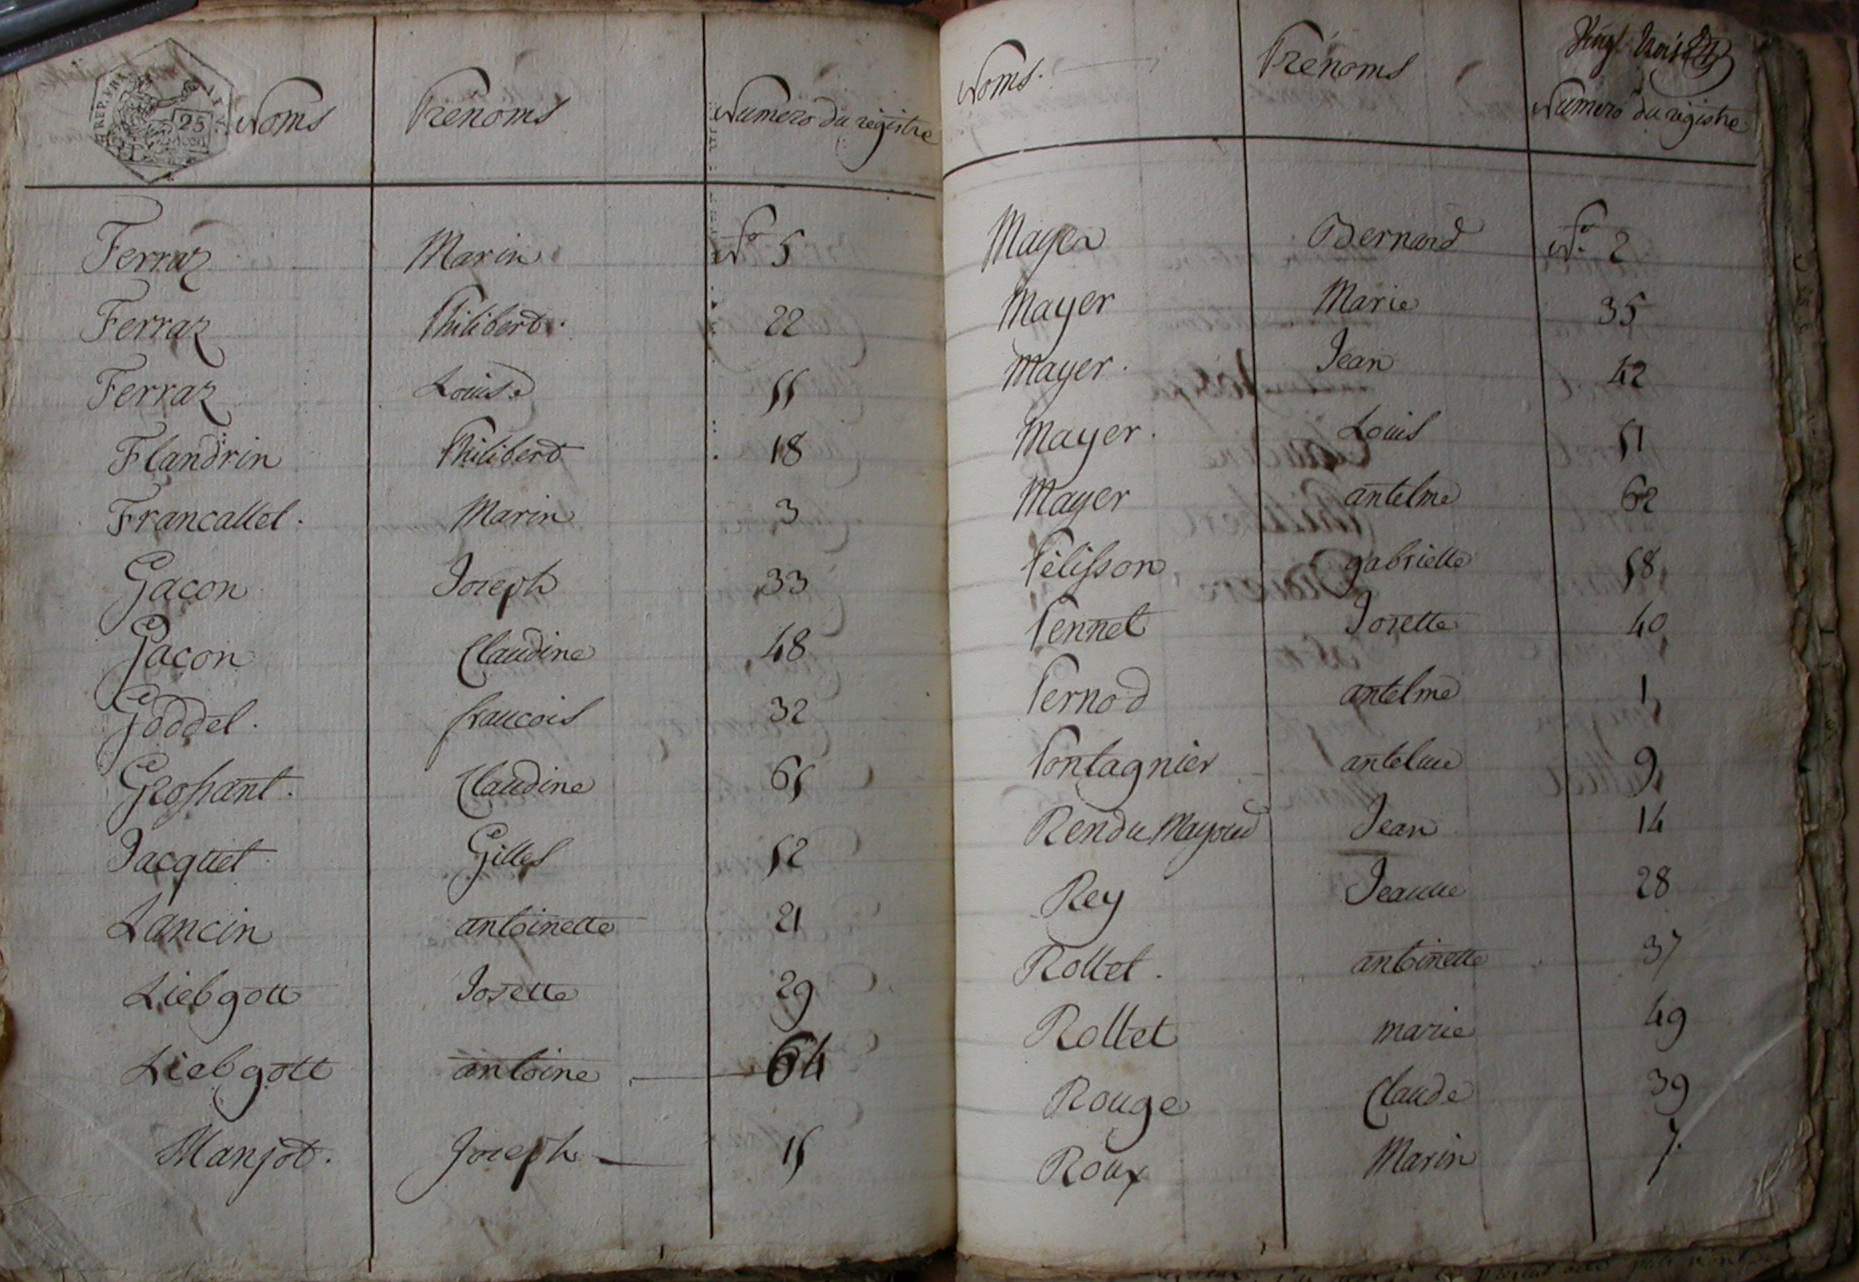 REP. FRA
25
Noms Prénoms Numero du registre
Ferraz Marin N° 5
Ferraz Philibert. 22
Ferraz Louise 55
Flandrin Philibert 18
Francallet. Marin 3
Gacon Joseph 33
Gacon Claudine 48
Goddel. francois 32
Grossant. Claudine 65
Jacquet Gilles 52
Lancin antoinette 21
Liebgott Josette 29
Liebgott antoine 64
Manjot. Joseph 15
Vingt trois
Noms. Prénoms Numéro du régistre
Mayer Bernard N° 2
Mayer Marie 35
Mayer. Jean 42
Mayer. Louis 51
Mayer antelme 62
Pélisson gabrielle 58
Pennet Josette 40
Pernod antelme 1
Pontagnier antelme 9
Rendu Mayoud Jean 14
Rey Jeanne 28
Rollet. antoinette 37
Rollet marie 49
Rouge Claude 39
Roux Marin 7.